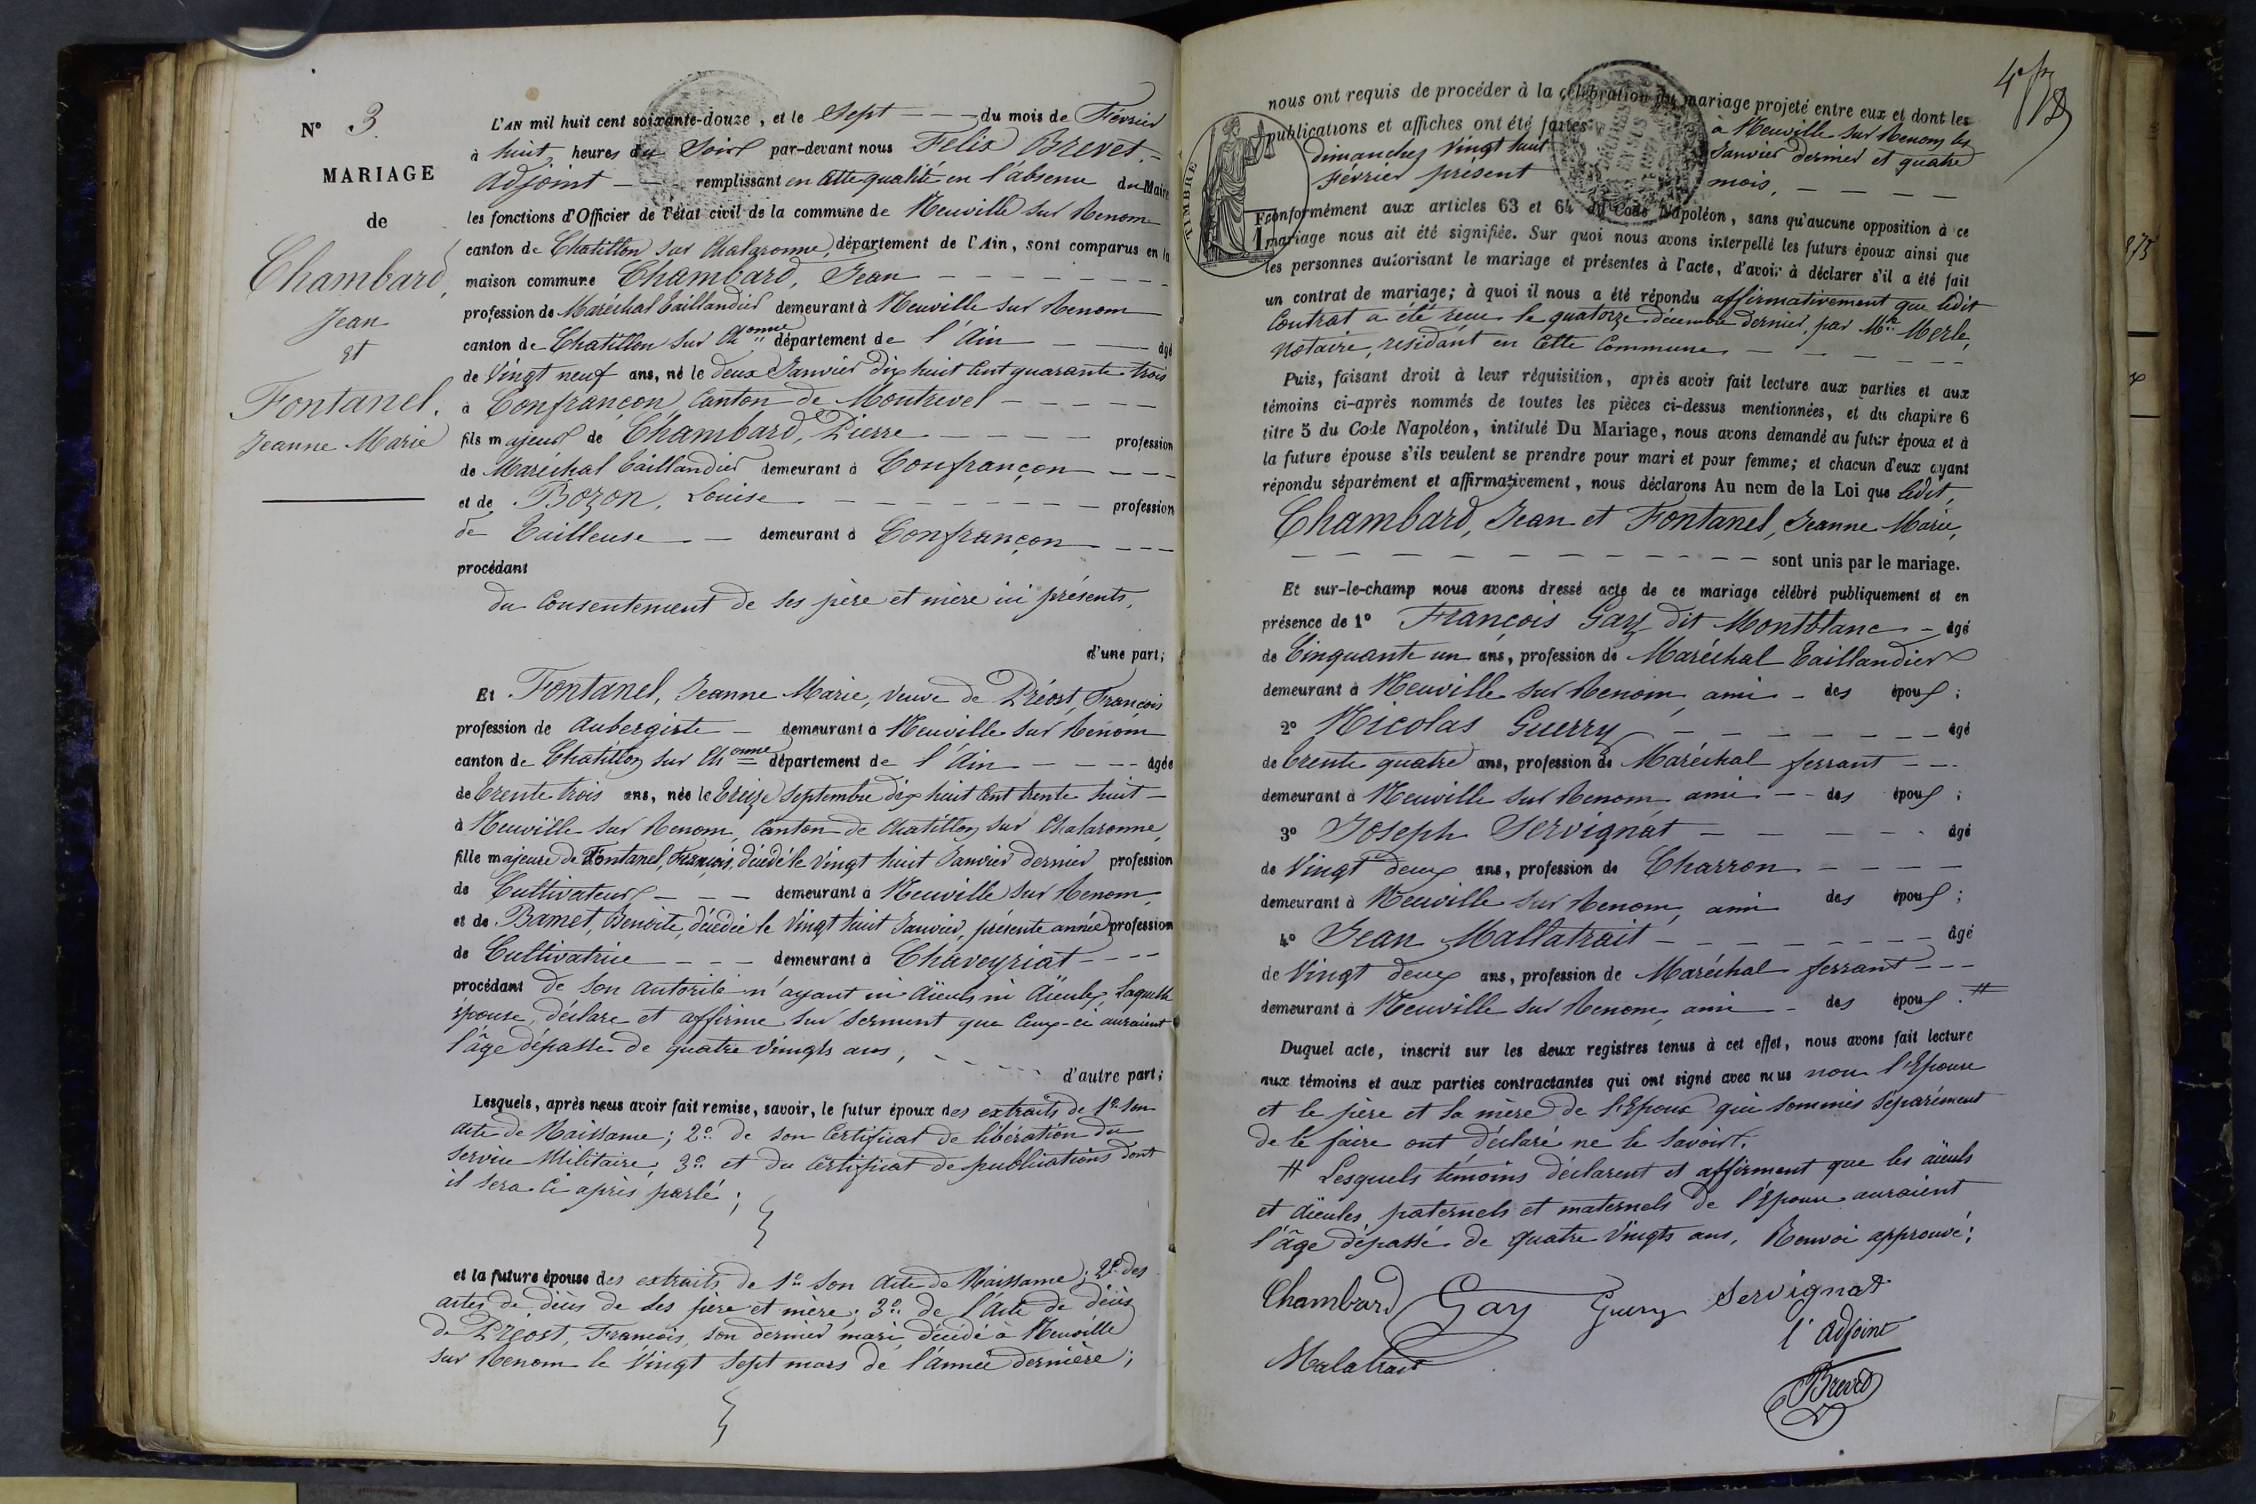 N° 3
MARIAGE
de
Chambard,
Jean
et
Fontanel,
Jeanne Marie
L'AN mil huit cent soixante-douze, et le Sept du mois de Février
à huit heures du Soir par-devant nous Félix Brevet,
adjoint remplissant en cette qualité en l'absence du Maire
les fonctions d'Officier de l'état civil de la commune de Neuville sur Renom
canton de Chatillon sur Chalaronne, département de l'Ain, sont comparus en la
maison commune Chambard, Jean
profession de Maréchal Taillandier demeurant à Neuville sur Renom
canton de Chatillon sur Chonne département de l'Ain âgé
de Vingt neuf ans, né le deux Janvier dix huit cent quarante trois
à Confrançon Canton de Montrevel
fils majeur de Chambard, Pierre profession
de Maréchal Taillandier demeurant à Confrançon
et de Bozon, Louise profession
de Tailleuse demeurant à Confrançon
procédant
du consentement de ses père et mère ici présents,
d'une part;
Et Fontanel, Jeanne Marie, veuve de Préost, François
profession de aubergiste demeurant à Neuville sur Renom
canton de Chatillon sur Chonne département de l'Ain âgée
de Trente trois ans, née le treize Septembre dix huit cent trente huit
à Neuville sur Renom, Canton de Chatillon sur Chalaronne
fille majeure de Fontanel, François, décédé le vingt huit Janvier dernier profession
de Cultivateur demeurant à Neuville sur Renom,
et de Bamet, Benoite, décédée le Vingt huit Janvier, présente année profession
de Cultivatrice demeurant à Chaveyriat
procédant de son autorité n'ayant ni aïeuls ni aïeules, Laquelle
épouse, déclare et affirme sur serment que ceux-ci auraient
l'âge dépassé de quatre vingts ans,
d'autre part;
Lesquels, après nous avoir fait remise, savoir, le futur époux des extraits de 1° son
acte de Naissance; 2° de son Certificat de libération du
service Militaire; 3° et du certificat de publications dont
il sera ci après parlé;
et la future épouse des extraits de 1° son acte de Naissance; 2° des
actes de décès de ses père et mère; 3° de l'acte de décès
de Préost, François, son dernier mari, décédé à Neuville
sur Renom le Vingt sept mars de l'année dernière;
nous ont requis de procéder à la célébration du mariage projeté entre eux et dont les
publications et affiches ont été faites à Neuville sur Renom les
dimanches Vingt huit Janvier dernier et quatre
Février présent mois,
TIMBRE
conformément aux articles 63 et 64 du Code Napoléon, sans qu'aucune opposition à ce
mariage nous ait été signifiée. Sur quoi nous avons interpellé les futurs époux ainsi que
les personnes autorisant le mariage et présentes à l'acte, d'avoir à déclarer s'il a été fait
un contrat de mariage; à quoi il nous a été répondu affirmativement que ledit
Contrat a été reçu le quatorze décembre dernier, par Me Merle,
Notaire, résidant en cette Commune
Puis, faisant droit à leur réquisition, après avoir fait lecture aux parties et aux
témoins ci-après nommés de toutes les pièces ci-dessus mentionnées, et du chapitre 6
titre 5 du Code Napoléon, intitulé Du Mariage, nous avons demandé au futur époux et à
la future épouse s'ils veulent se prendre pour mari et pour femme; et chacun d'eux ayant
répondu séparément et affirmativement, nous déclarons Au nom de la Loi que ledit,
Chambard, Jean et Fontanel, Jeanne Marie,
sont unis par le mariage.
Et sur-le-champ nous avons dressé acte de ce mariage célébré publiquement et en
présence de 1° François Gay dit Montblanc âgé
de Cinquante un ans, profession de Maréchal Taillandier
demeurant à Neuville sur Renom, ami des époux;
2° Nicolas Guerry âgé
de Trente quatre ans, profession de Maréchal ferrant
demeurant à Neuville sur Renom ami des époux;
3° Joseph Servignat âgé
de Vingt deux ans, profession de Charron
demeurant à Neuville sur Renom, ami des époux;
4° Jean Mallatrait âgé
de Vingt deux ans, profession de Maréchal ferrant
demeurant à Neuville sur Renom, ami des époux. #
Duquel acte, inscrit sur les deux registres tenus à cet effet, nous avons fait lecture
aux témoins et aux parties contractantes qui ont signé avec nous non l'Epouse
et le père et la mère de l'Epoux qui sommés séparément
de le faire ont déclaré ne le savoir.
# Lesquels témoins déclarent et affirment que les aïeuls
et aïeules paternels et maternels de l'Epouse auraient
l'âge dépassé de quatre Vingts ans, Renvoi approuvé;
Chambard Gay Guerry Servignat
l'adjoint
Malatrait
Brevet
875